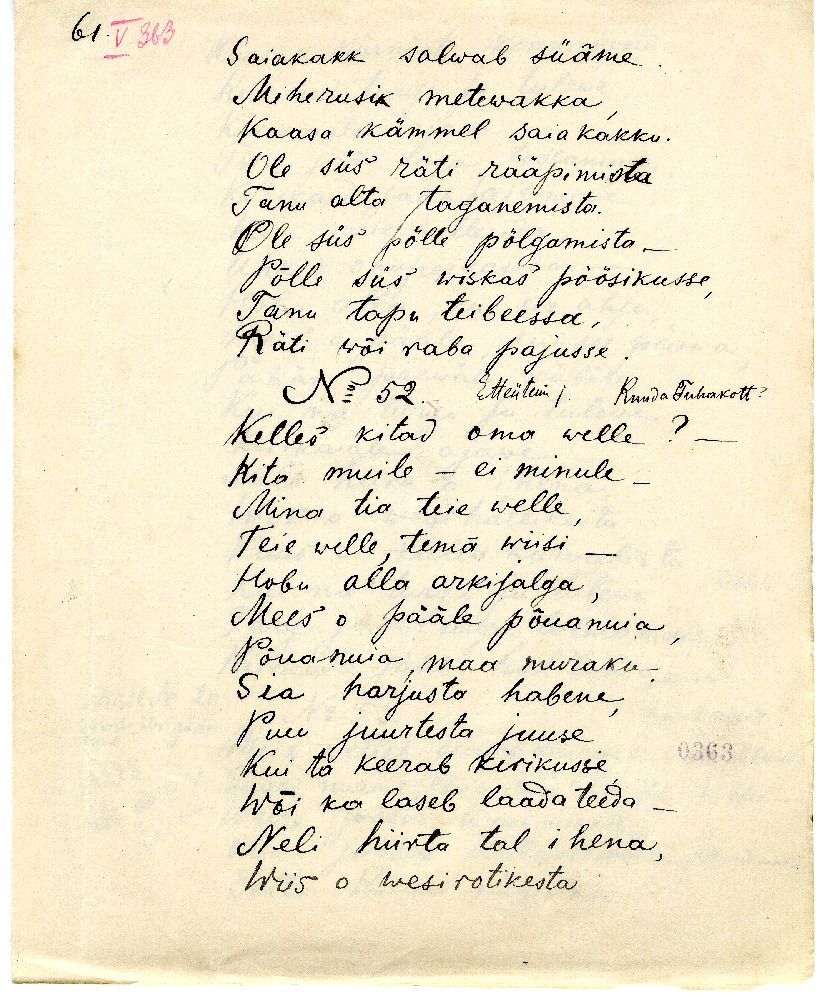 61. V 363
Saiakakk salwab süäme.
Meherusik metewakka,
Kaasa kämmel saiakakku.
Ole siis räti rääpimista
Tanu alta taganemista.
Ole siis põlle põlgamista —
Põlle siis wiskas põõsikusse,
Tanu tapu teibeessa,
Räti wõi raba pajusse.
№ 52. Ruuda Tuhakott?
Kelles kitad oma welle? —
Kita muile — ei minule —
Mina tia teie welle,
Teie welle, temä wiisi —
Hobu alla arkijalga,
Mees o pääle põuanuia,
Põuanuia, maa muraku.
Sia harjusta habene,
Puu juurtesta juuse
Kui ta keerab kirikusse,
Wõi ka laseb laada teeda —
Neli hiirta tal ihena,
Wiis o wesirotikesta
0363